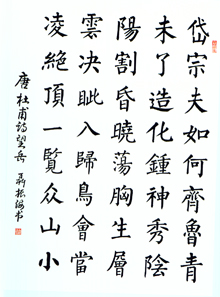 岱宗夫如何齊魯青
未了造化鍾神秀陰
陽割昏曉蕩胸生層
雲决眦入歸鳥會當
凌絕頂一覽众山小
唐杜甫詩望岳